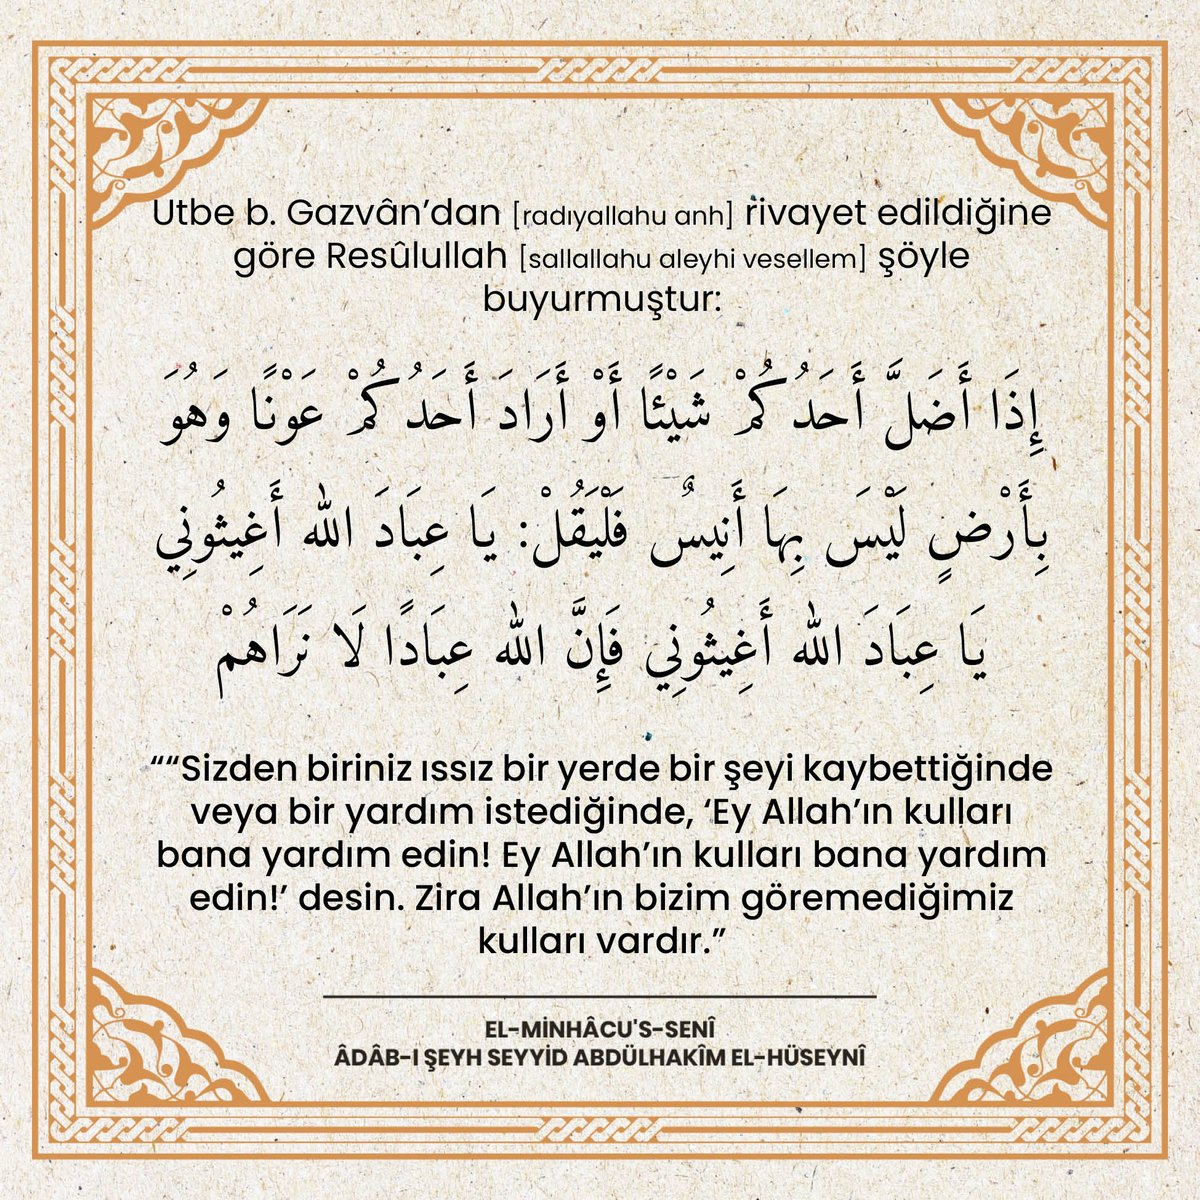 Utbe b. Gazvân’dan [radıyallahu anh] rivayet edildiğine
göre Resûlullah [sallallahu aleyhi vesellem] şöyle
buyurmuştur:
إِذَا أَضَلَّ أَحَدُكُمْ شَيْئًا أَوْ أَرَادَ أَحَدُكُمْ عَوْنًا وَهُوَ
بِأَرْضٍ لَيْسَ بِهَا أَنِيسٌ فَلْيَقُلْ: يَا عِبَادَ الله أَغِيثُونِي
يَا عِبَادَ الله أَغِيثُونِي فَإِنَّ الله عِبَادًا لَا نَرَاهُمْ
““Sizden biriniz ıssız bir yerde bir şeyi kaybettiğinde
veya bir yardım istediğinde, ‘Ey Allah’ın kulları
bana yardım edin! Ey Allah’ın kulları bana yardım
edin!’ desin. Zira Allah’ın bizim göremediğimiz
kulları vardır.”
EL-MİNHÂCU'S-SENÎ
ÂDÂB-I ŞEYH SEYYİD ABDÜLHAKÎM EL-HÜSEYNÎ